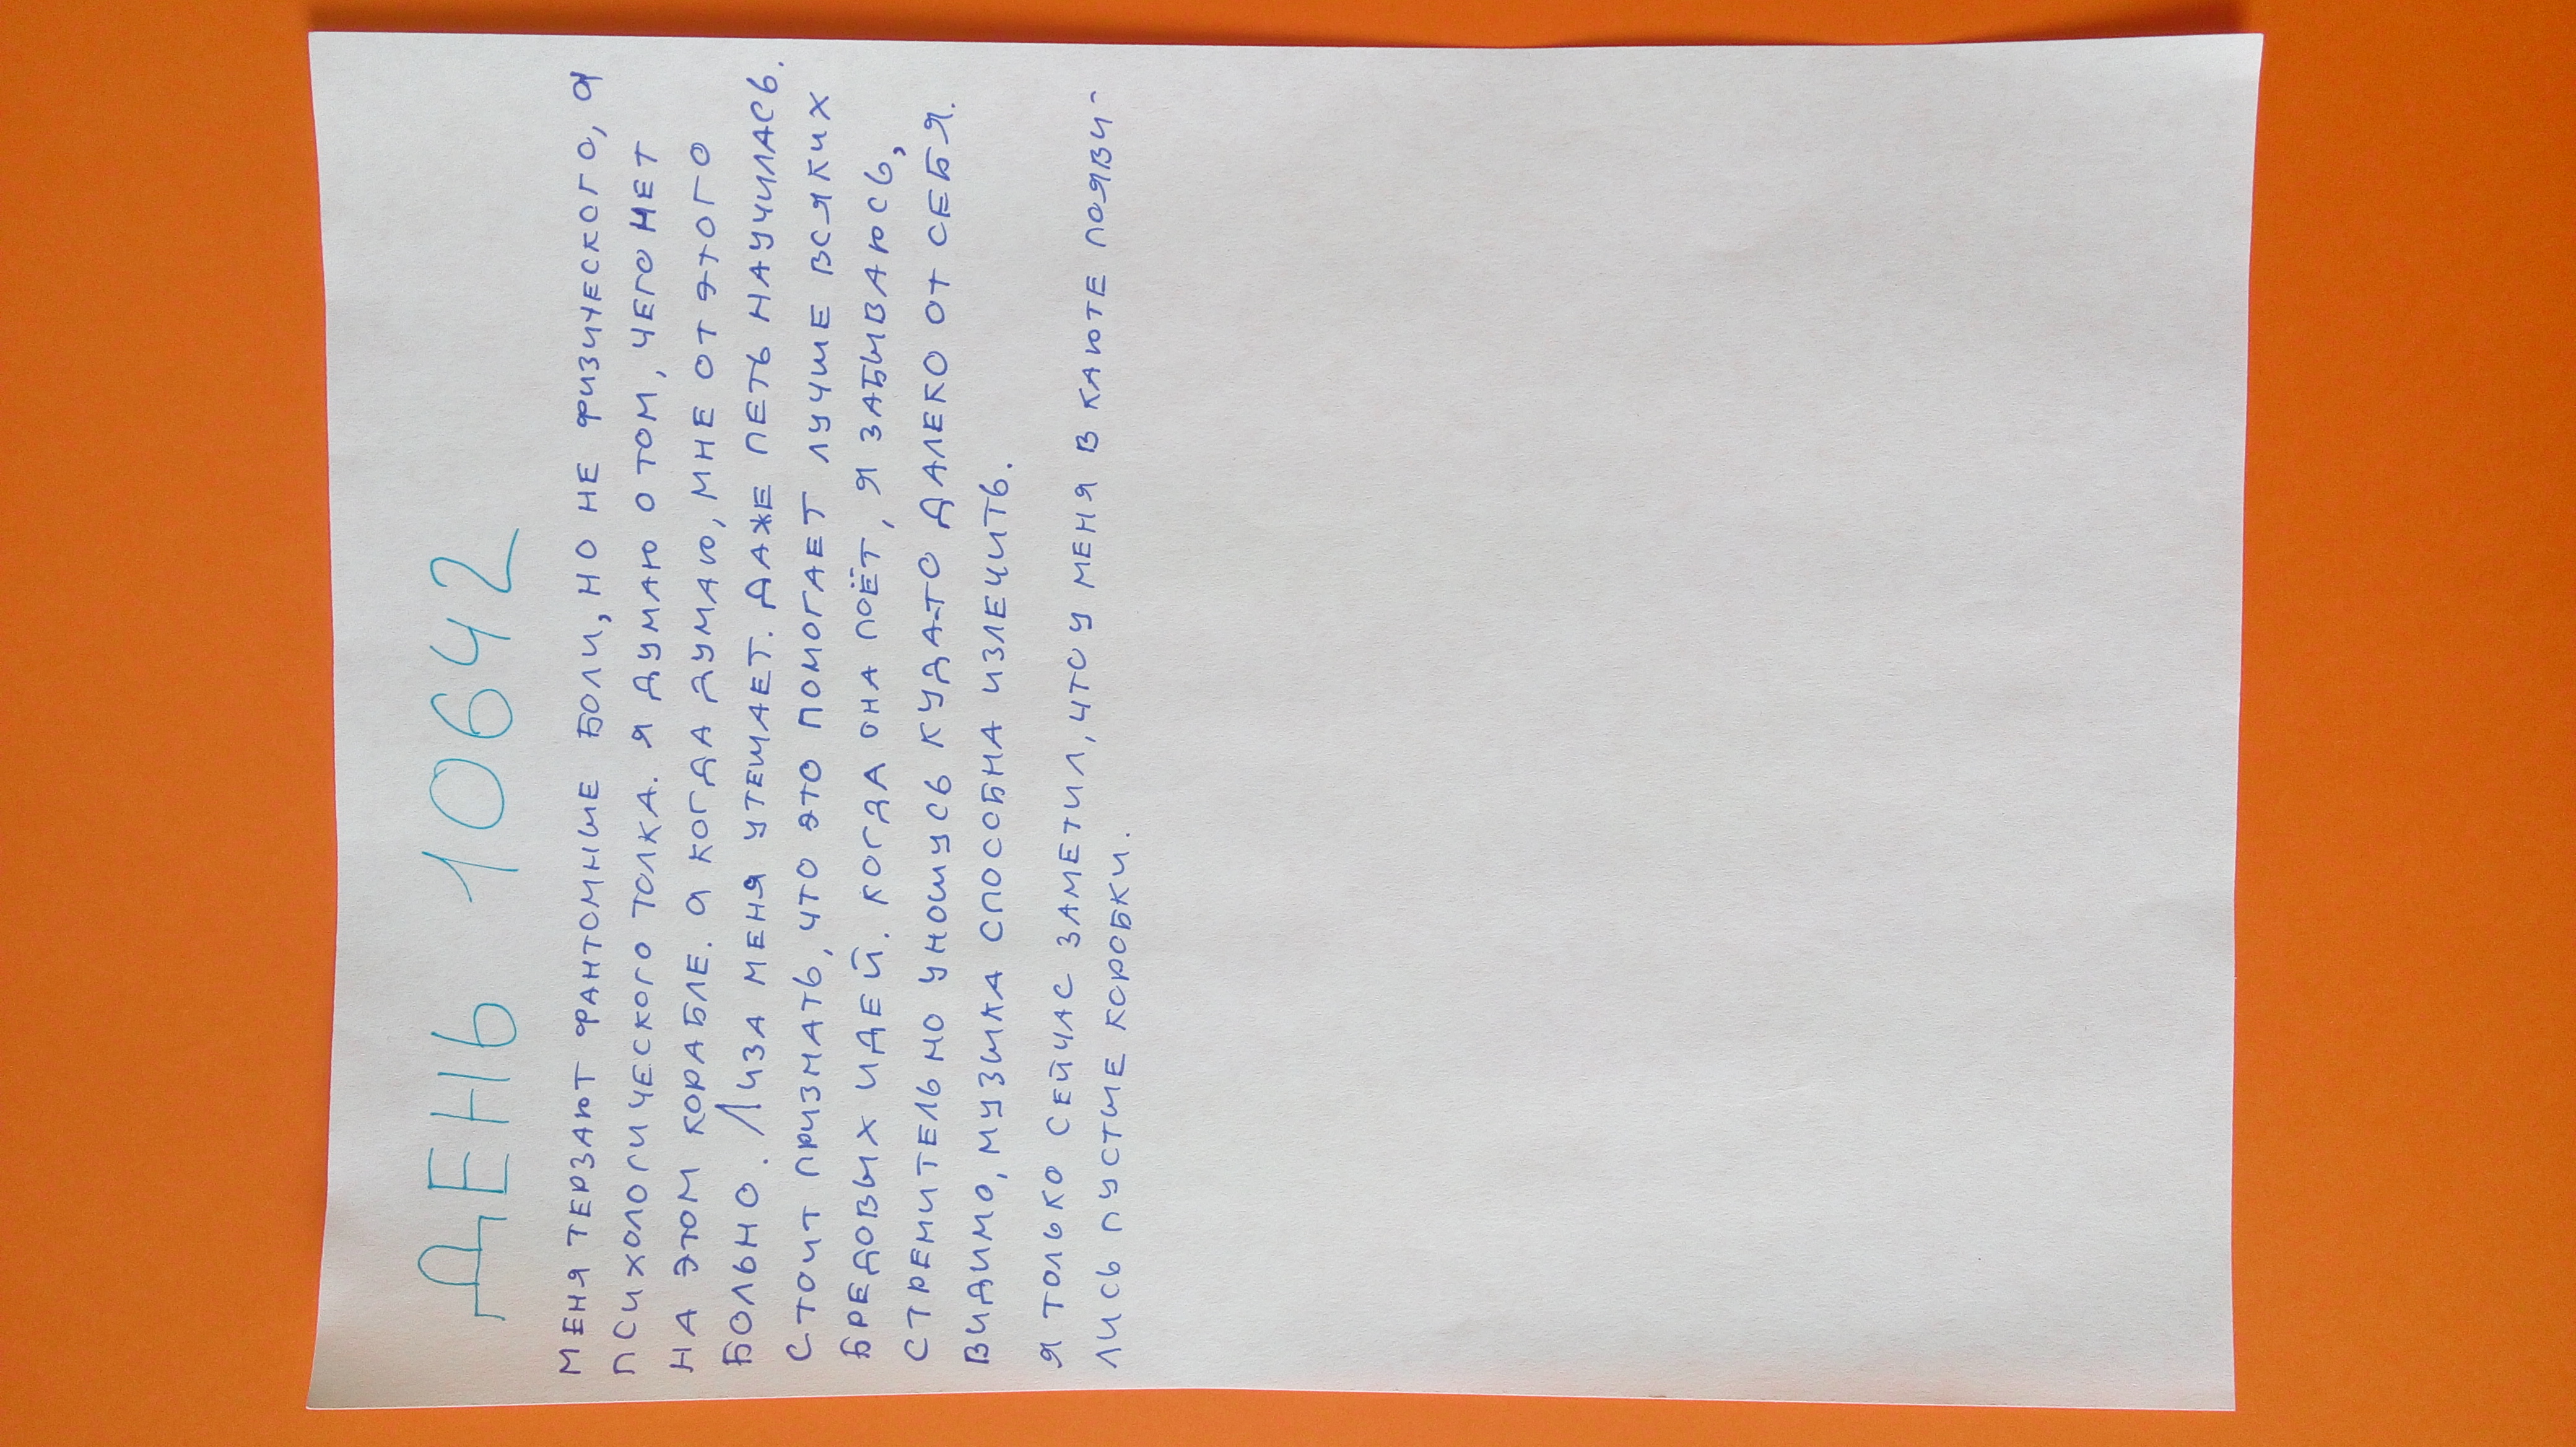 ДЕНЬ 10642
МЕНЯ ТЕРЗАЮТ ФАНТОМНЫЕ БОЛИ, НО НЕ ФИЗИЧЕСКОГО, а
ПСИХОЛОГИЧЕСКОГО ТОЛКА. Я ДУМАЮ О ТОМ, ЧЕГО НЕТ
НА ЭТОМ КОРАБЛЕ. а КОГДА ДУМАЮ, МНЕ ОТ ЭТОГО
БОЛЬНО. ЛИЗА МЕНЯ УТЕШАЕТ. ДАЖЕ ПЕТЬ НАУЧИЛАСЬ.
СТОИТ ПРИЗНАТЬ, ЧТО ЭТО ПОМОГАЕТ ЛУЧШЕ ВСЯКИХ
БРЕДОВЫХ ИДЕЙ. КОГДА ОНА ПОЁТ, Я ЗАБЫВАЮСЬ,
СТРЕМИТЕЛЬНО УНОШУСЬ КУДА-ТО ДАЛЕКО ОТ СЕБЯ.
ВИДИМО, МУЗЫКА СПОСОБНА ИЗЛЕЧИТЬ.
Я ТОЛЬКО СЕЙЧАС ЗАМЕТИЛ, ЧТО У МЕНЯ В КАЮТЕ ПОЯВИ-
ЛИСЬ ПУСТЫЕ КОРОБКИ.